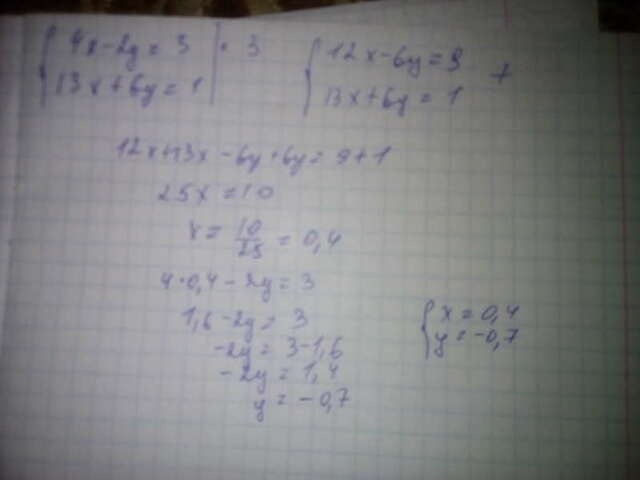 { 4x-2y=3 | · 3
{ 13x+6y=1
{ 12x-6y=9 +
{ 13x+6y=1
12x+13x-6y+6y=9+1
25x=10
x=10/25=0,4
4·0,4-2y=3
1,6-2y=3
-2y=3-1,6
-2y=1,4
y=-0,7
{ x=0,4
{ y=-0,7